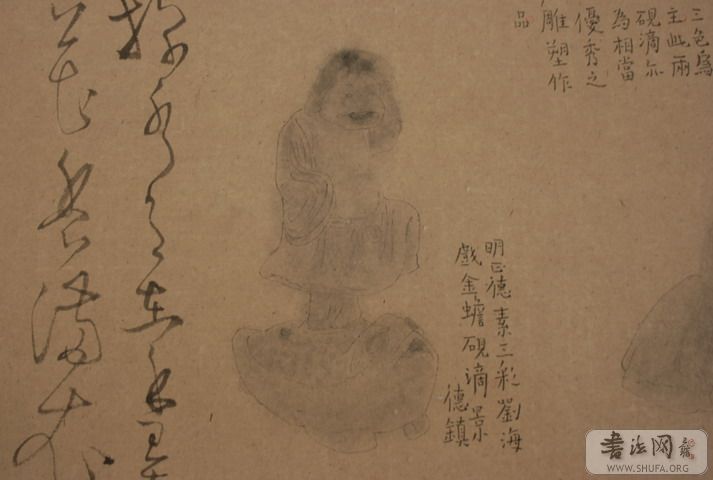 三色為
主此兩
硯滴亦
為相當
優秀之
雕塑作
品
明正德素三彩劉海
戲金蟾硯滴景
德鎮
掬水月在手
花香滿衣
書法网
WWW.SHUFA.ORG